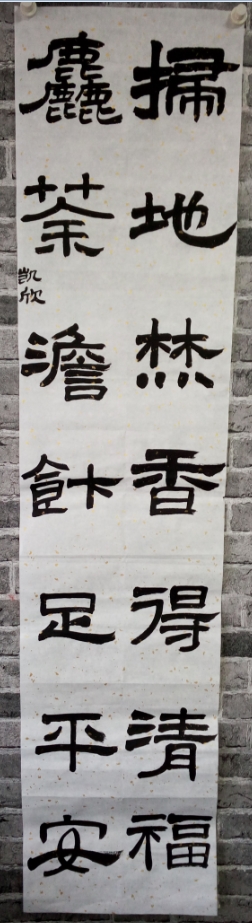 掃地焚香得清福
麤茶澹飰足平安
凯欣